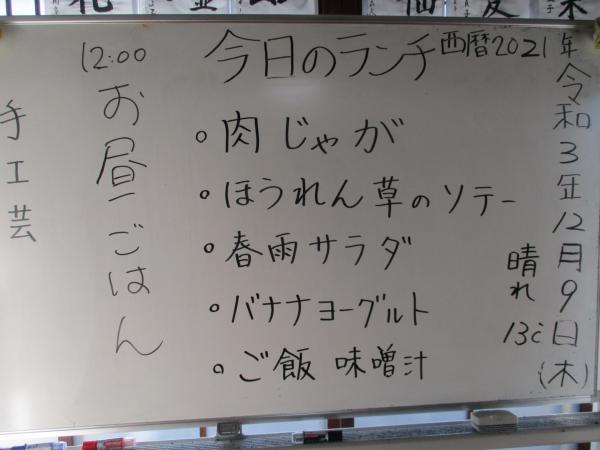 西暦2021年
令和3年12月9日(木)
晴れ
13℃
今日のランチ
。肉じゃが
。ほうれん草のソテー
。春雨サラダ
。バナナヨーグルト
。ご飯 味噌汁
12:00
お昼ごはん
手工芸